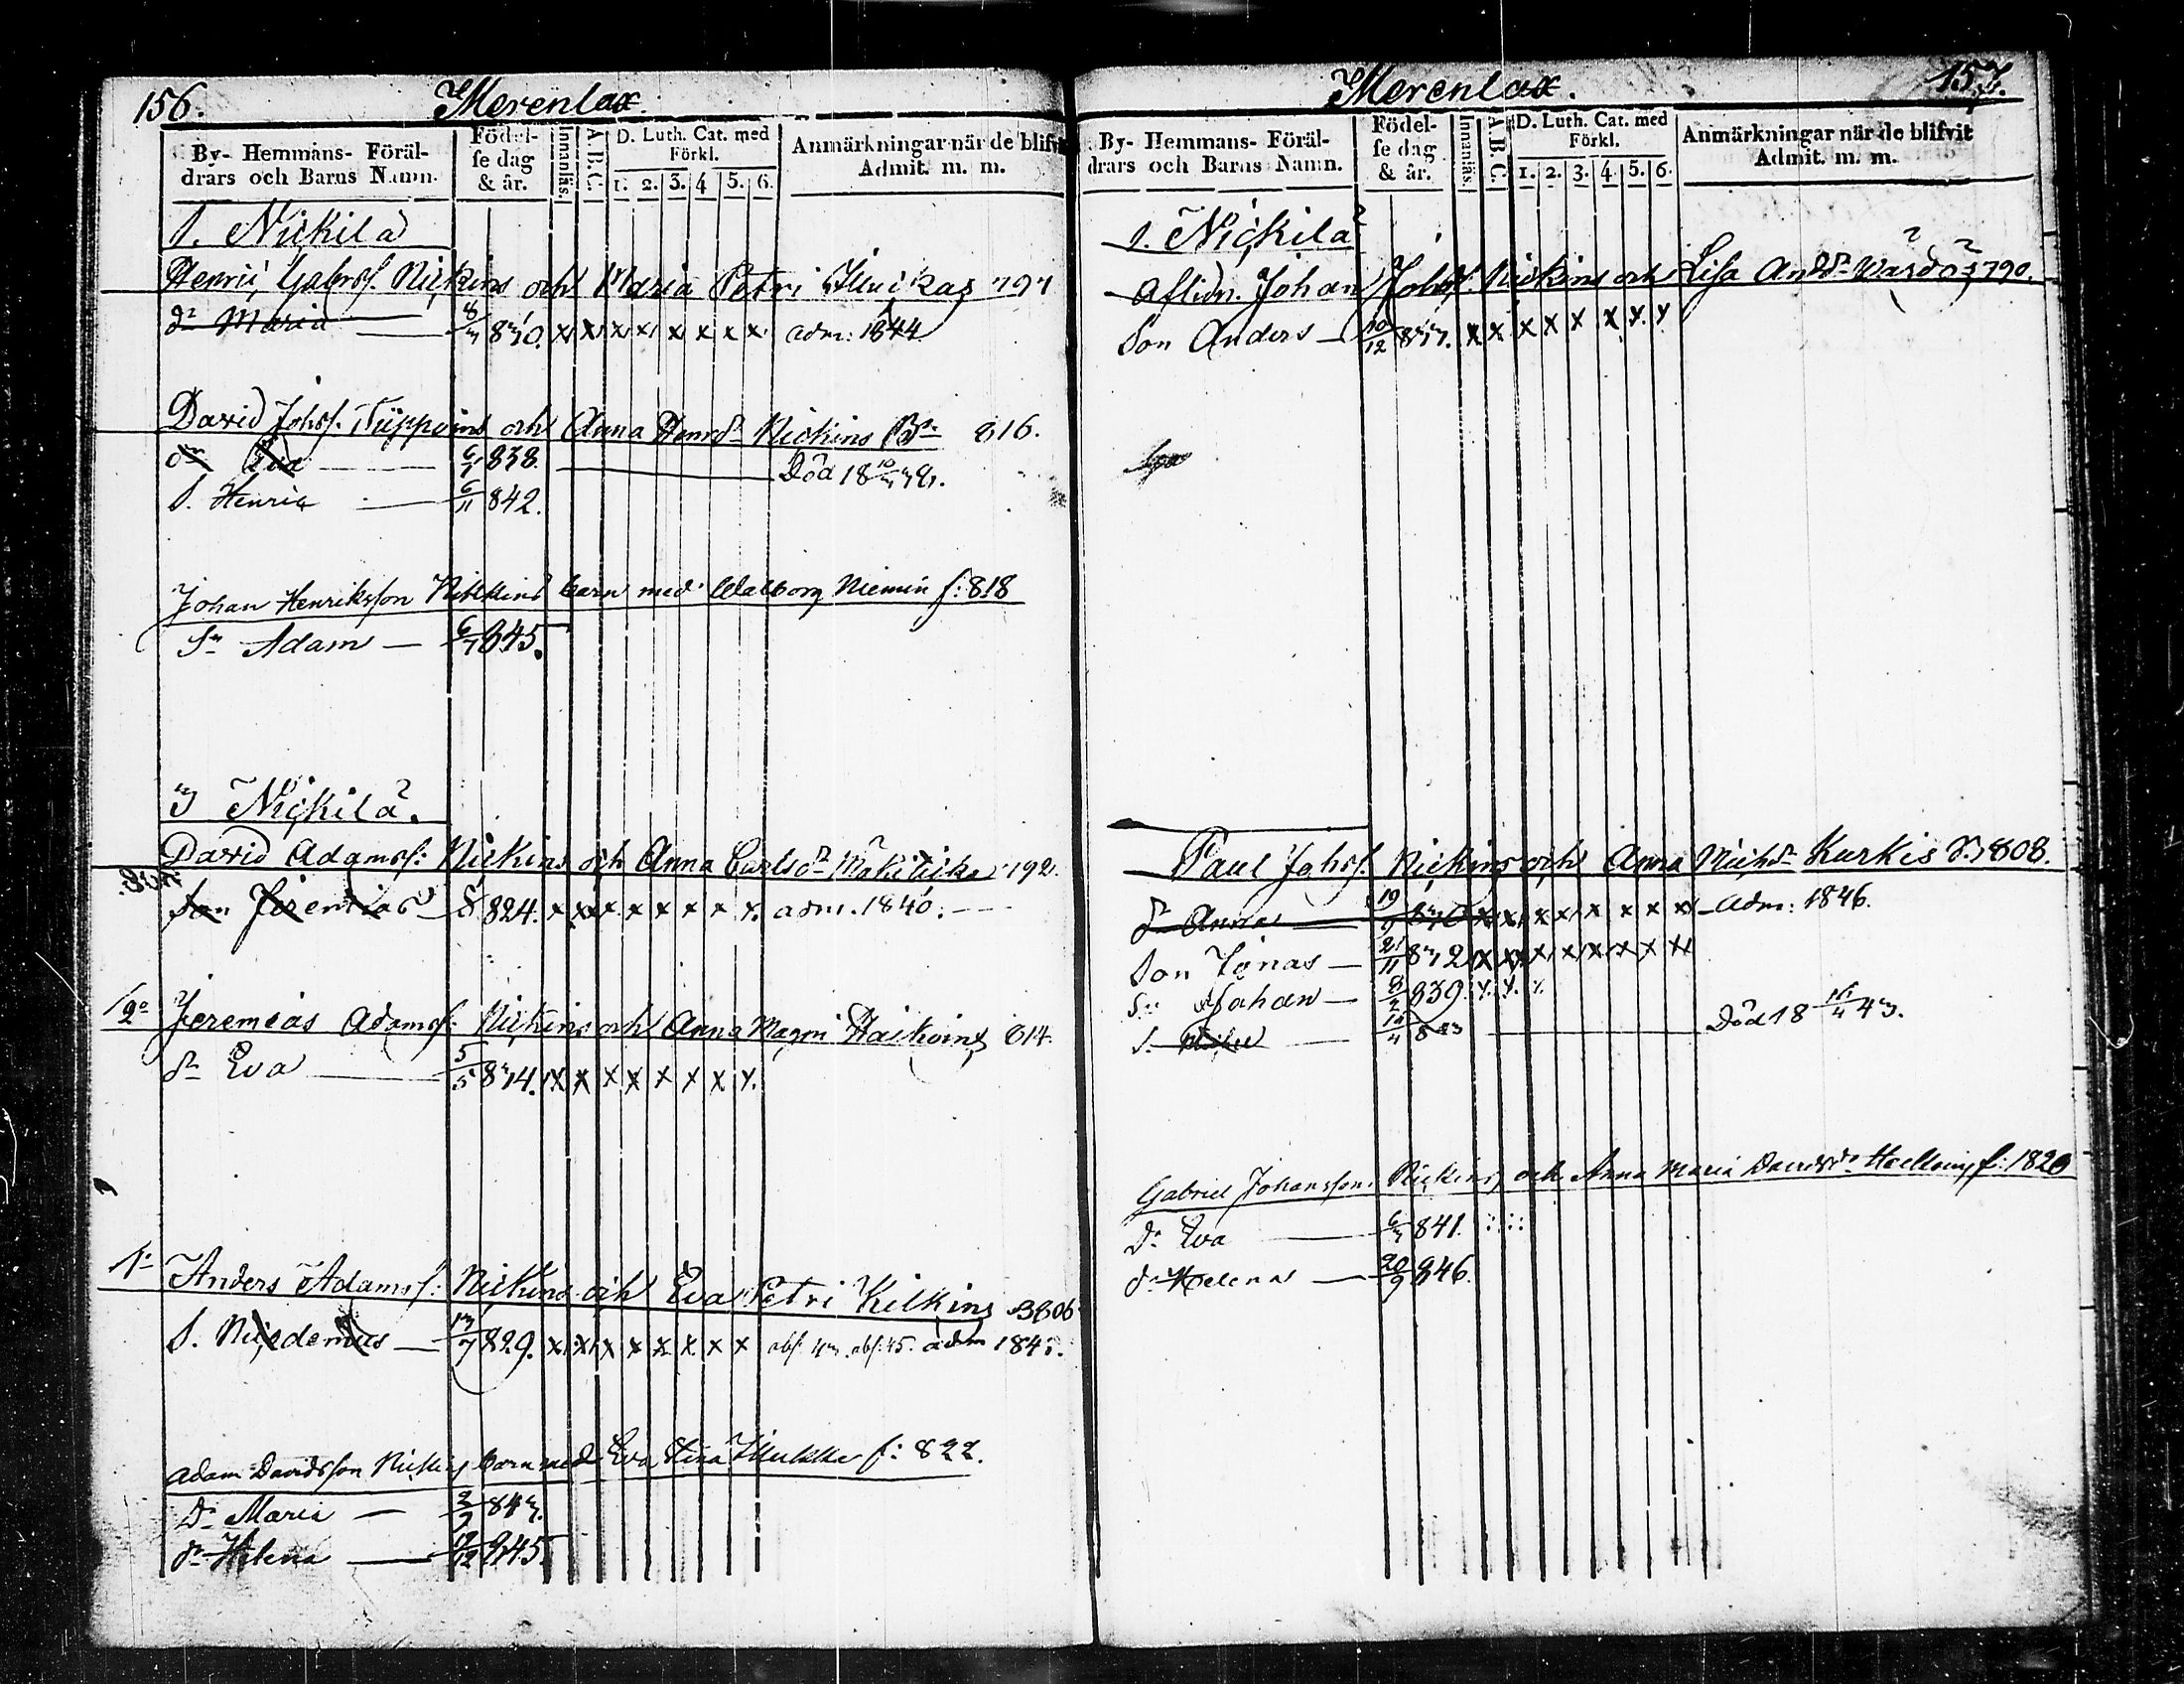 156.
Merenlax.
By- Hemmans- Föräl-
drars och Barns Namn.
Födel-
se dag
& år.
Innanläs.
A. B. C.
D. Luth. Cat. med
Förkl.
1. 2. 3. 4 5. 6.
Anmärkningar när de blifvit
Admit. m. m.
1. Nickilä
Henric Gabrsf. Nickins och Maria Petri
dr Maria 830. x x x x x x x x adm: 1844
David Johsf. och Anna Henrdr Nickins 816.
dr Eva 838. Död
S. Henric 6/11 842.
Johan Henriksson Nickins barn med Walborg Niemin f: 818
Sn Adam 845.
3 Nickilä.
David Adamsf: Nickins och Anna Carlsdr 792.
Son Jeremias 824. x x x x x x x x adm. 1840.
2o Jeremias Adamsf. Nickins och Anna Magni Haikoins 814.
dr Eva 5/5 834. x x x x x x x x
1o Anders Adamsf: Nickins och Eva Petri Kilkins 806
S. Nicodemus 829. x x x x x x x x abs. abs: 45. adm
Adam Davidsson Nickins barn med Eva Stina f: 822.
Dr Maria 843.
dr Helena 845.
Merenlax.
157.
By- Hemmans- Föräl-
drars och Barns Namn.
Födel-
se dag
& år.
Innanläs.
A. B. C.
D. Luth. Cat. med
Förkl.
1. 2. 3. 4. 5. 6.
Anmärkningar när de blifvit
Admit. m. m.
1. Nickilä
Aflidn. Johan Johsf. Nickins och Lisa Anddr 790.
Son Anders 10/12 833. x x x x x x x x
Paul Johsf. Nickins och Anna Michdr Kurkis 1808.
dr Anna 19/9 830 x x x x x x x x Adm: 1846.
Son Jonas 21/11 832 x x x x x x x x
Sn Johan 8/2 839. x x x
S. Död 18 43.
Gabriel Johansson Nickins och Anna Maria Davidsdr f: 1820
Dr Eva 841.
dr Helena 20/9 846.